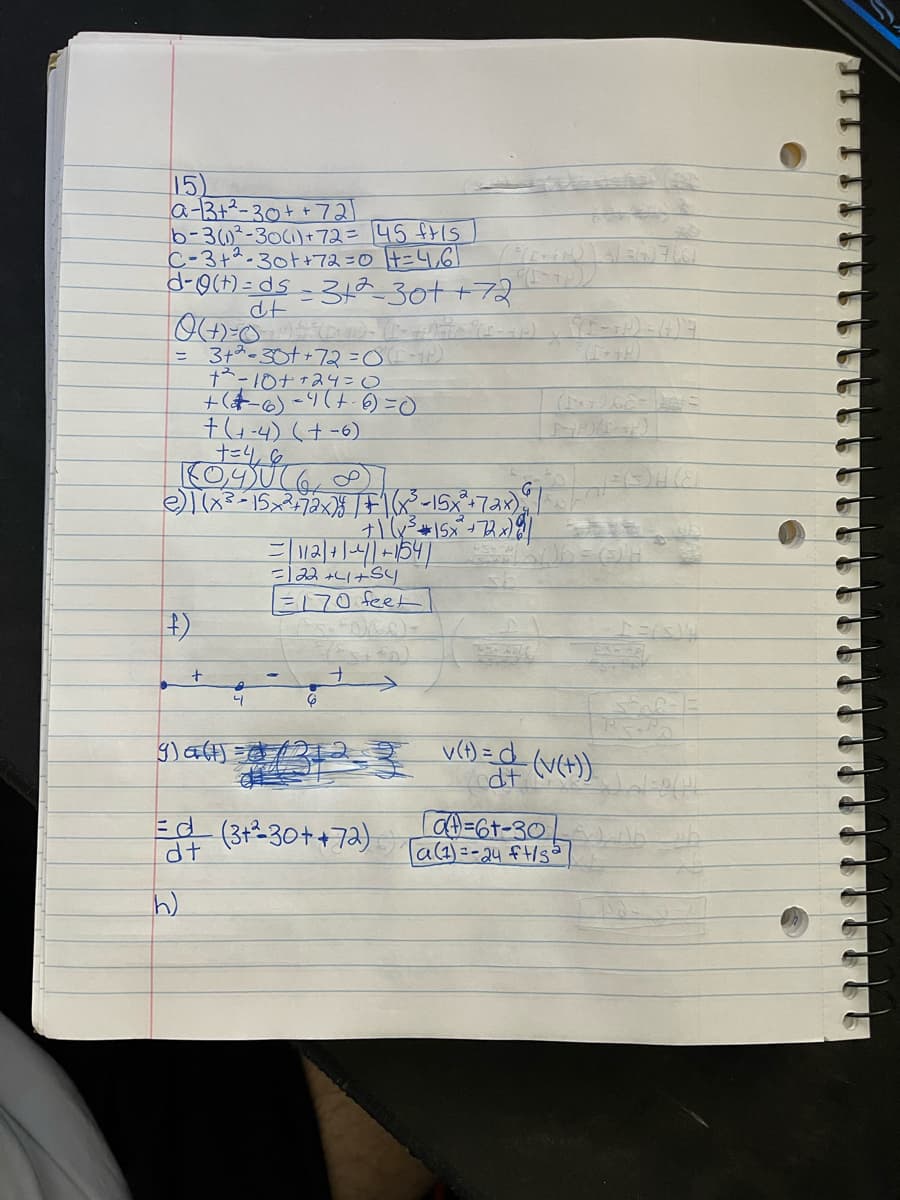 15)
a-3t²-30t+72
b-3(1)²-30(1)+72= 45 ft/s
c-3t²-30t+72=0 t=4,6
d-v(t)=ds/dt=3t²-30t+72
v(t)=0
= 3t²-30t+72=0
t²-10t+24=0
t(t-6)-4(t-6)=0
t(t-4)(t-6)
t=4,6
(0,4)∪(6,∞)
e)|(x³-15x²+72x)|+|(x³-15x²+72x)|
+|(x³-15x²+72x)|
=|112|+|-4|+|54|
=122+4+54
=170 feet
f)
+ - +
4 6
g) a(t)= v(t)=d/dt (v(t))
=d/dt (3t²-30t+72) a(t)=6t-30
a(1)=-24 ft/s²
h)